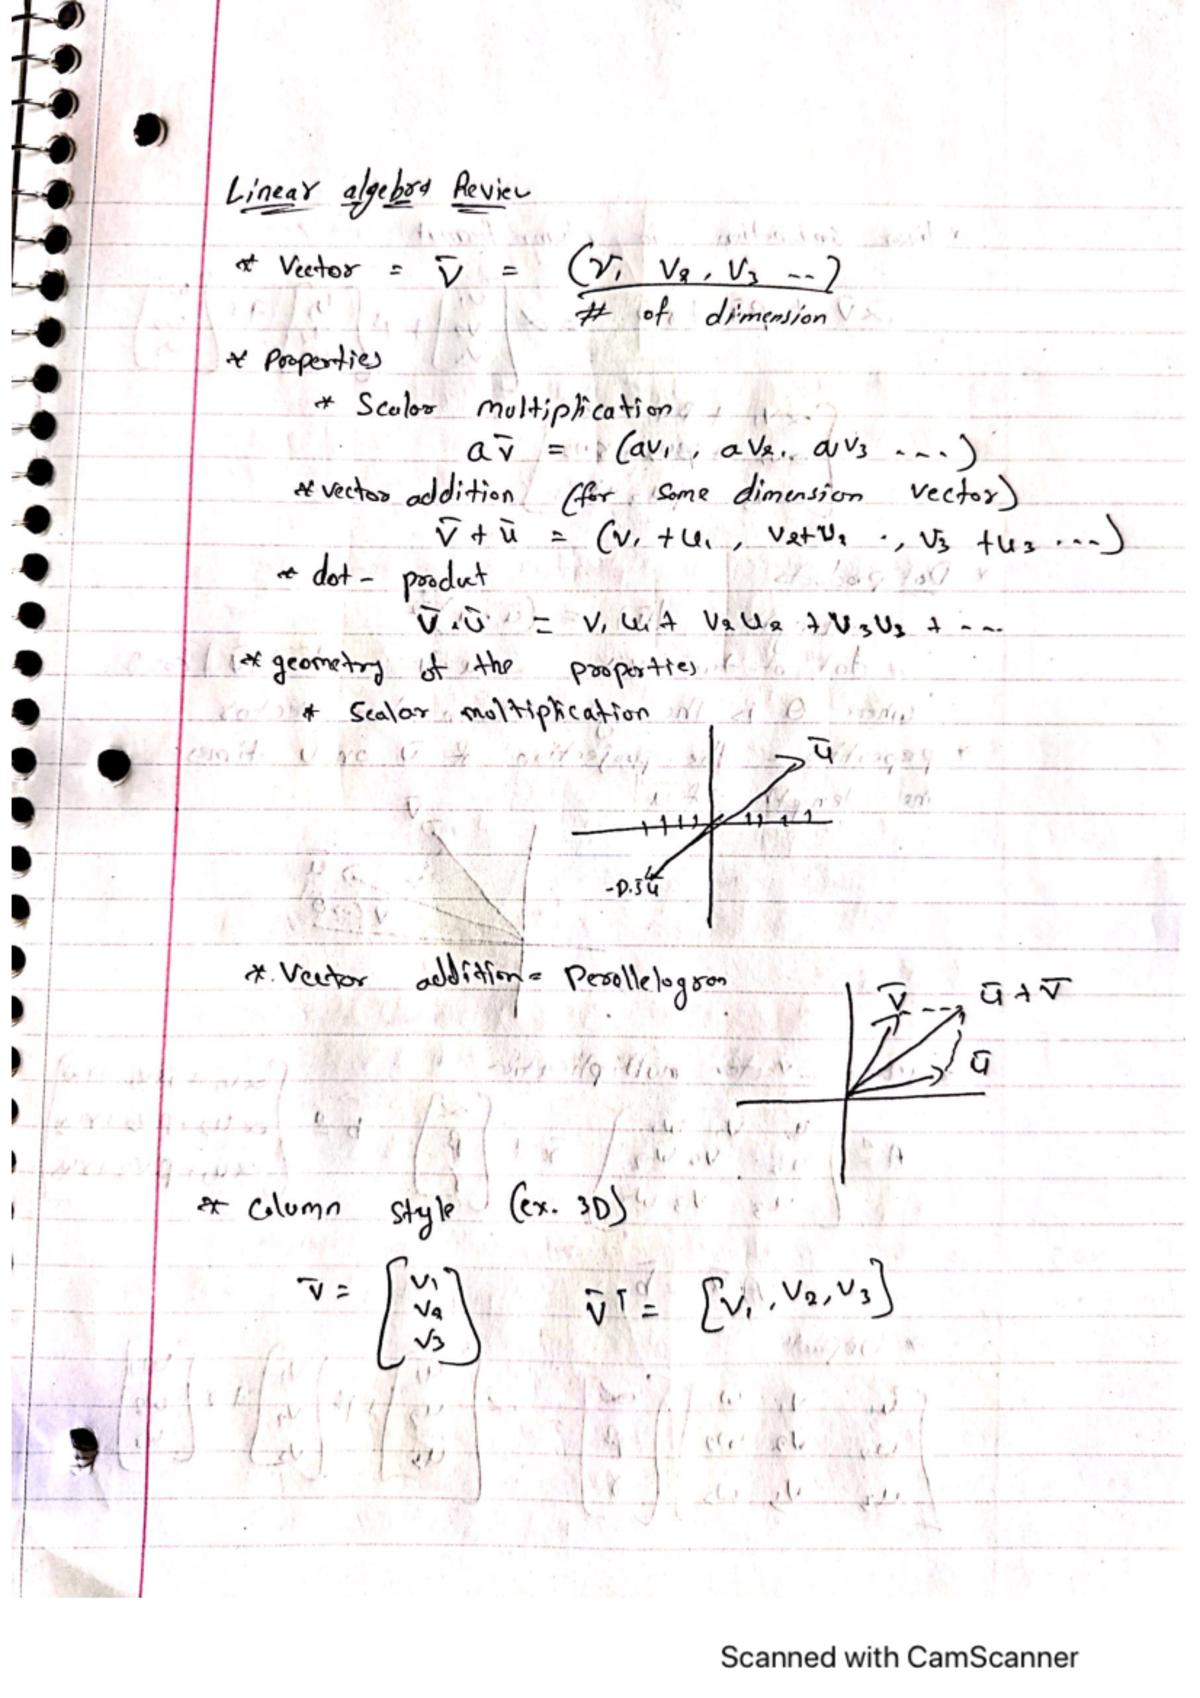 Linear algebra Review
* Vector = v̄ = (v₁ v₂, v₃ ---)
# of dimension
* Properties
* Scalar multiplication
a v̄ = (av₁, av₂, av₃ ----)
* vector addition (for same dimension vector)
v̄ + ū = (v₁ + u₁, v₂+u₂, v₃ + u₃ ---)
* dot - product
v̄ . ū = v₁ u₁ + v₂ u₂ + v₃ u₃ + ---
* geometry of the properties
* Scalar multiplication
ū
-0.5ū
* Vector addition = Parellelogram
v̄
ū + v̄
ū
* Column style (ex. 3D)
v̄ = [v₁ v₂ v₃]
v̄ᵀ = [v₁, v₂, v₃]
Scanned with CamScanner